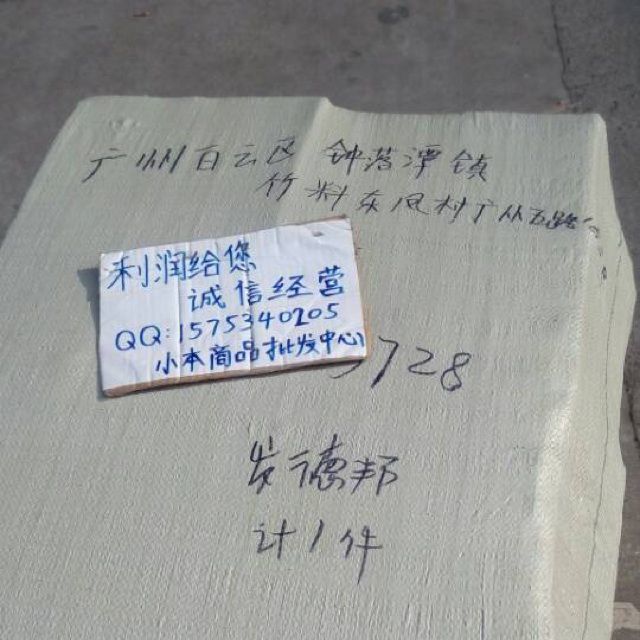 广州白云区 钟落潭镇
竹料东凤村广从五路
利润给您
诚信经营
QQ:1575340205
小本商品批发中心
3728
发德邦
计1件